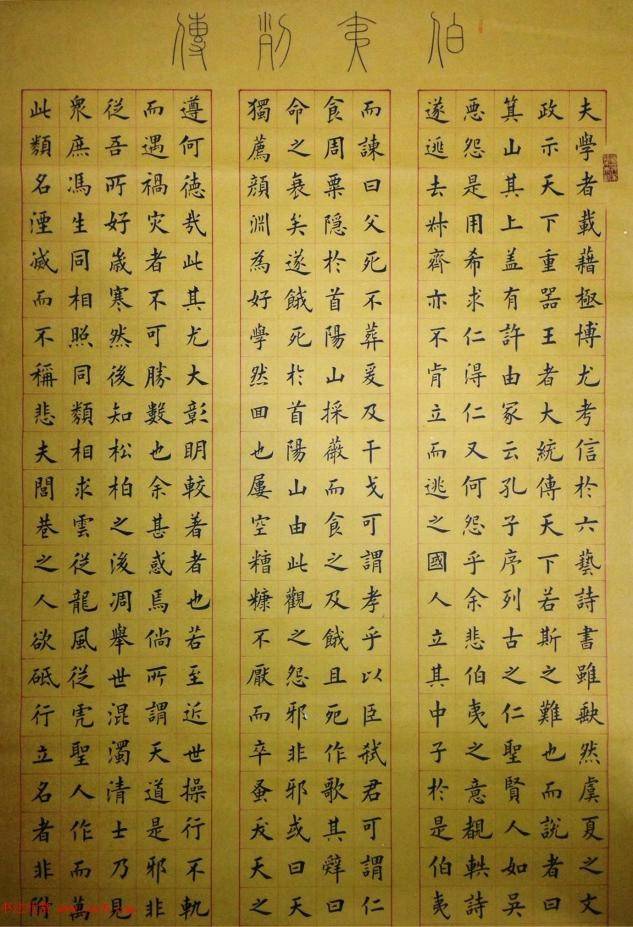 伯夷列傳
夫學者載藉極博尤考信於六藝詩書雖缺然虞夏之文
政示天下重器王者大統傳天下若斯之難也而說者曰
箕山其上盖有許由冢云孔子序列古之仁聖賢人如吳
悪怨是用希求仁得仁又何怨乎余悲伯夷之意覩軼詩
遂逃去叔齊亦不肯立而逃之國人立其中子於是伯夷
而諫曰父死不葬爰及干戈可謂孝乎以臣弑君可謂仁
食周粟隱於首陽山採薇而食之及餓且死作歌其辭曰
命之衰矣遂餓死於首陽山由此觀之怨邪非邪或曰天
獨薦顏淵為好學然回也屢空糟糠不厭而卒蚤夭天之
遵何德哉此其尤大彰明較著者也若至近世操行不軌
而遇禍灾者不可勝數也余甚惑焉倘所謂天道是邪非
從吾所好歲寒然後知松柏之後凋舉世混濁清士乃見
衆庶馮生同相照同類相求雲從龍風從虎聖人作而萬
此類名湮滅而不稱悲夫閭巷之人欲砥行立名者非附